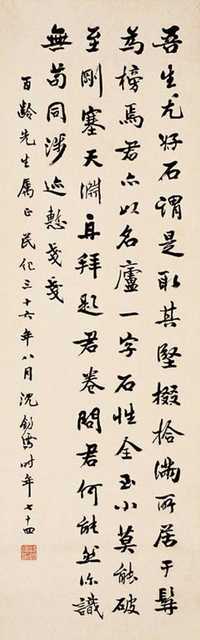 吾生尤好石謂是取其堅掇拾滿所居于髯
為榜焉君亦以名廬一字石性全至小莫能破
至剛塞天淵再拜題君卷問君何能然深識
無苟同涉迹慙戔戔
百齡先生屬正 民紀三十六年八月沈鈞儒時年七十四